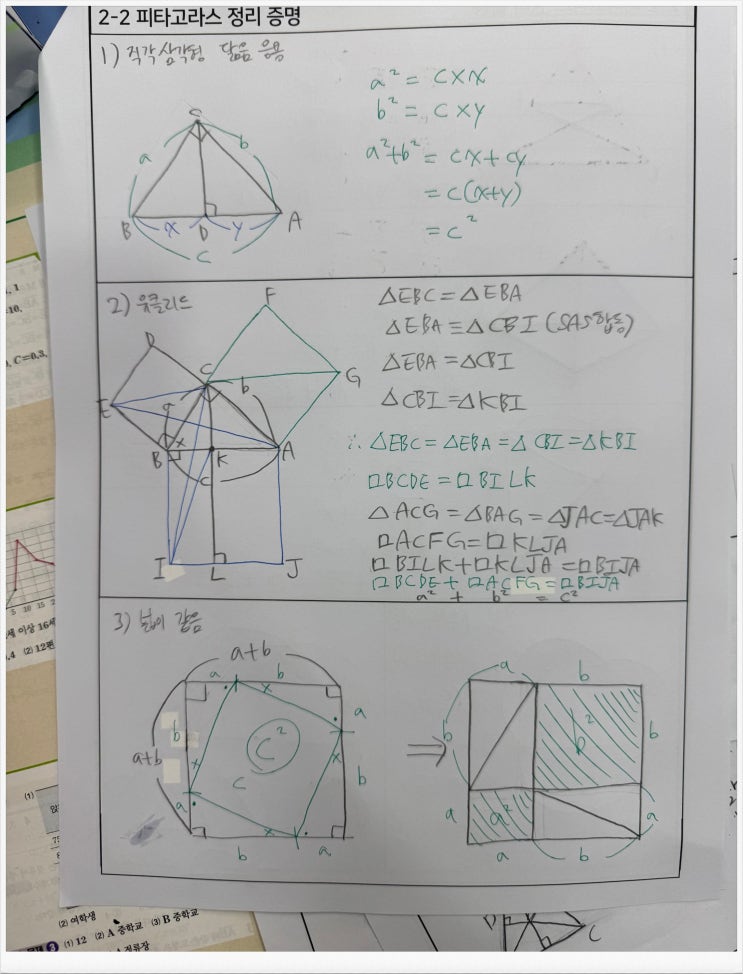 2-2 피타고라스 정리 증명
1) 직각삼각형 닮음 응용
C
a b
B x D y A
c
a² = c×x
b² = c×y
a²+b² = cx+cy
= c(x+y)
= c²
2) 유클리드
F
D
C
G
b
E
a
B x K A
c
I L J
△EBC=△EBA
△EBA≡△CBI (SAS합동)
△EBA=△CBI
△CBI=△KBI
∴ △EBC=△EBA=△CBI=△KBI
□BCDE=□BILK
△ACG=△BAG=△JAC=△JAK
□ACFG=□KLJA
□BILK+□KLJA=□BIJA
□BCDE+□ACFG=□BIJA
a² + b² = c²
3) 넓이 같음
a+b
a b
x
a
b
c²
x
x
a+b
c
b
a
x
b a
⇒
a b
b
b²
b
a
a²
a
a b
, 1
C=0.3,
5 10 15
세 이상 16세
.4 (2) 12편
(1)
(2) 여학생
(1) 12 (2) A 중학교 (3) B 중학교
C